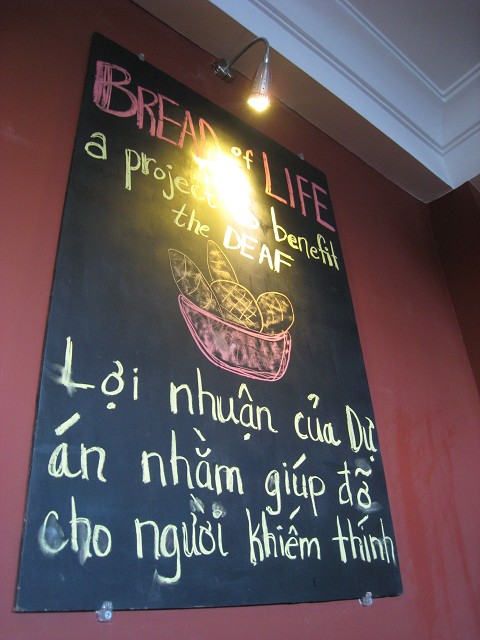 BREAD of LIFE
a project to benefit
the DEAF
Lợi nhuận của Dự
án nhằm giúp đỡ
cho người khiếm thính